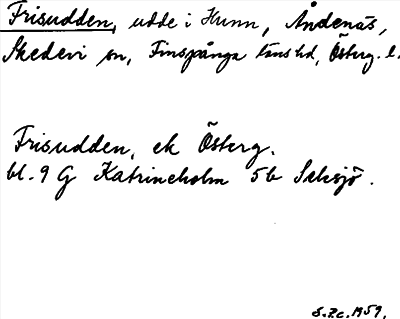 Frisudden, udde i Hunn, Åndenäs,
Skedevi sn, Finspånga läns hd, Österg. l.
Frisudden, ek Österg.
bl. 9 G Katrineholm 5b
1959.